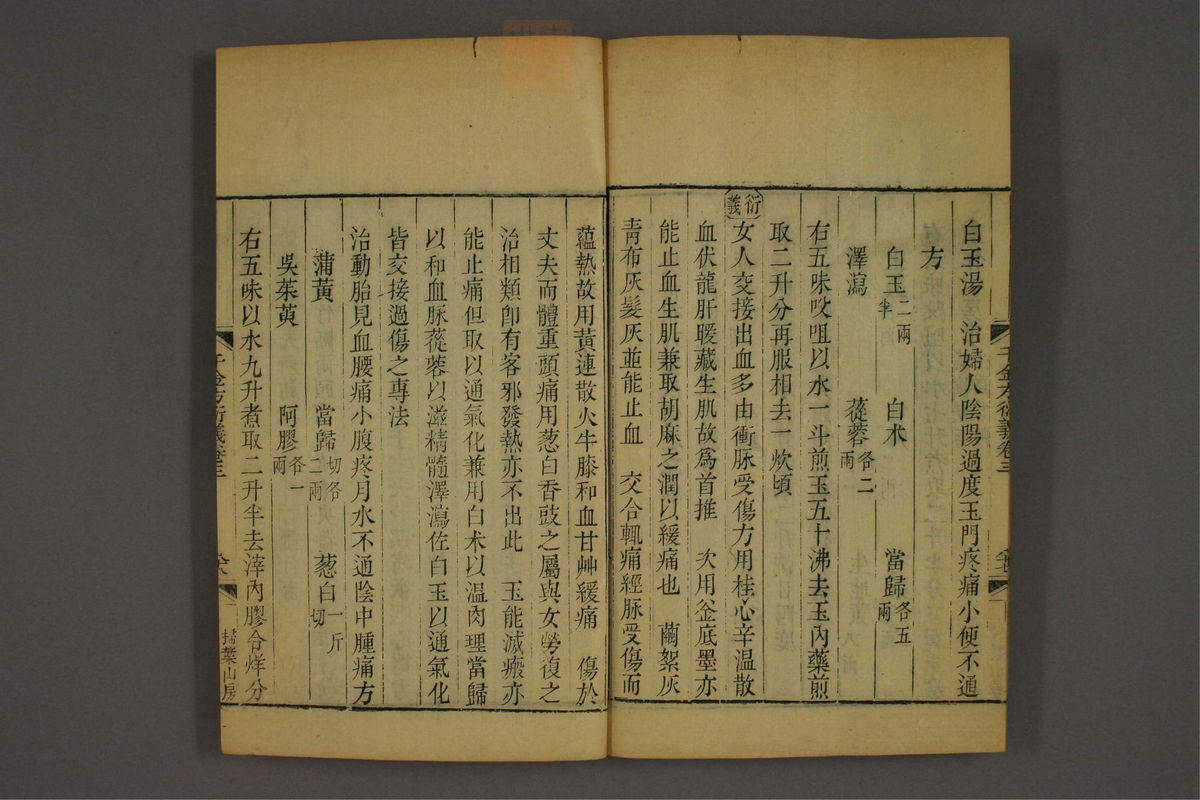 白玉湯 治婦人陰陽過度玉門疼痛小便不通
方
白玉二兩半 白朮 當歸各五兩
澤瀉 蓯蓉各二兩
右五味㕮咀以水一斗煎玉五十沸去玉內藥煎
取二升分再服相去一炊頃
衍義
女人交接出血多由衝脉受傷方用桂心辛温散
血伏龍肝暖藏生肌故為首推 次用釡底墨亦
能止血生肌兼取胡麻之潤以緩痛也 繭絮灰
青布灰髮灰並能止血 交合輒痛經脉受傷而
千金方衍義卷三
蘊熱故用黃連散火牛膝和血甘艸緩痛 傷於
丈夫而體重頭痛用葱白香豉之屬與女勞復之
治相類卽有客邪發熱亦不出此 玉能滅瘢亦
能止痛但取以通氣化兼用白朮以溫肉理當歸
以和血脉蓯蓉以滋精髓澤瀉佐白玉以通氣化
皆交接過傷之專法
治動胎見血腰痛小腹疼月水不通陰中腫痛方
蒲黃 當歸切各二兩 葱白一斤切
吳茱萸 阿膠各一兩
右五味以水九升煮取二升半去滓內膠令烊分
千金方衍義卷三
掃葉山房